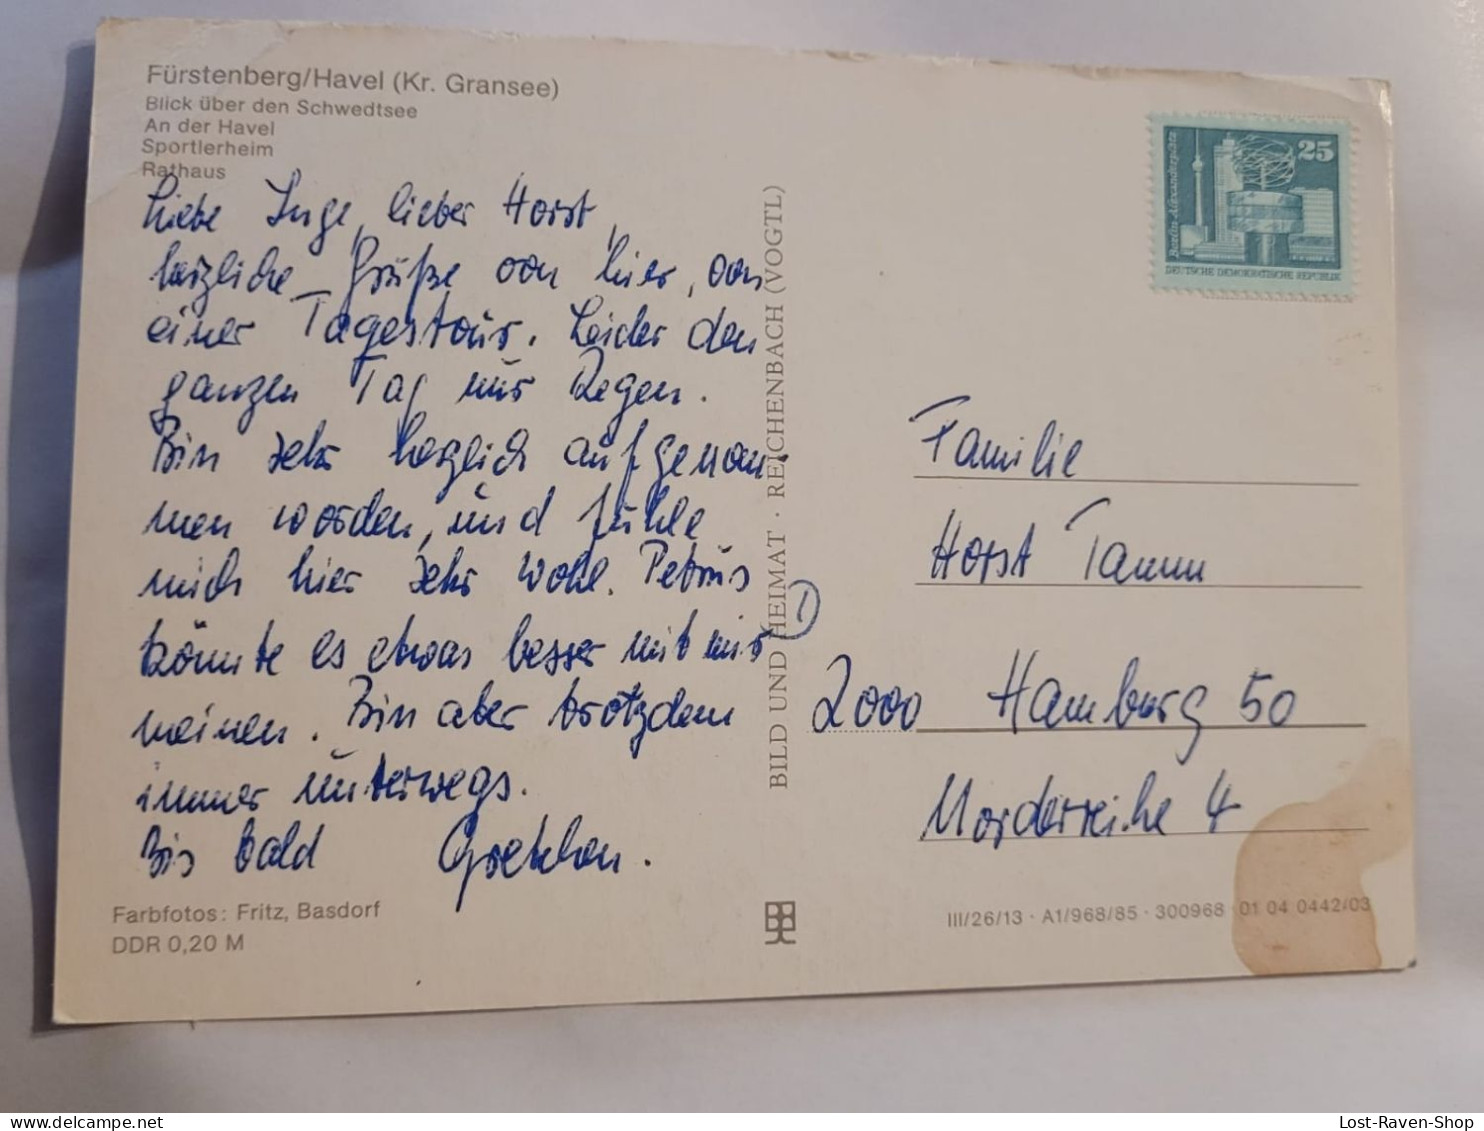 Fürstenberg/Havel (Kr. Gransee)
Blick über den Schwedtsee
An der Havel
Sportlerheim
Rathaus
Liebe Inge, lieber Horst,
herzliche Grüße von hier, von
einer Tagestour. Leider den
ganzen Tag nur Regen.
Bin sehr herzlich aufgenom-
men worden, und fühle
mich hier sehr wohl. Petrus
könnte es etwas besser mit mir
meinen. Bin aber trotzdem
immer unterwegs.
Bis bald Gretchen.
Farbfotos: Fritz, Basdorf
DDR 0,20 M
BILD UND HEIMAT · REICHENBACH (VOGTL)
1
25
Berlin, Alexanderplatz
DEUTSCHE DEMOKRATISCHE REPUBLIK
Familie
Horst Tamm
2000 Hamburg 50
Norderreihe 4
III/26/13 · A1/968/85 · 300968 01 04 0442/03
Lost-Raven-Shop